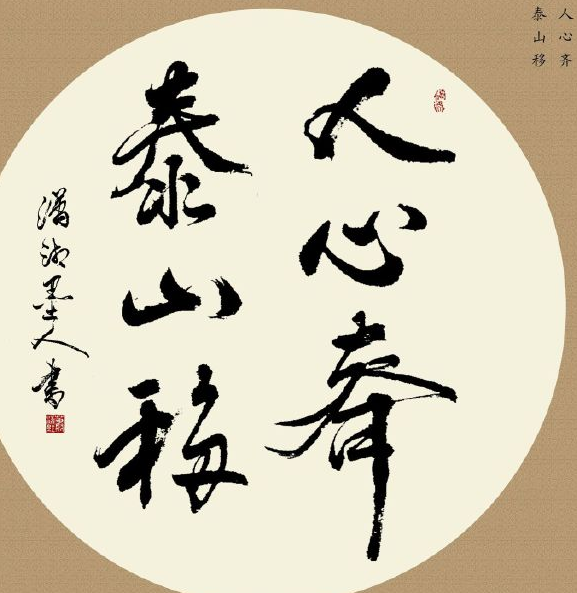 人心齐
泰山移
人心齐
泰山移
潇湘墨人书